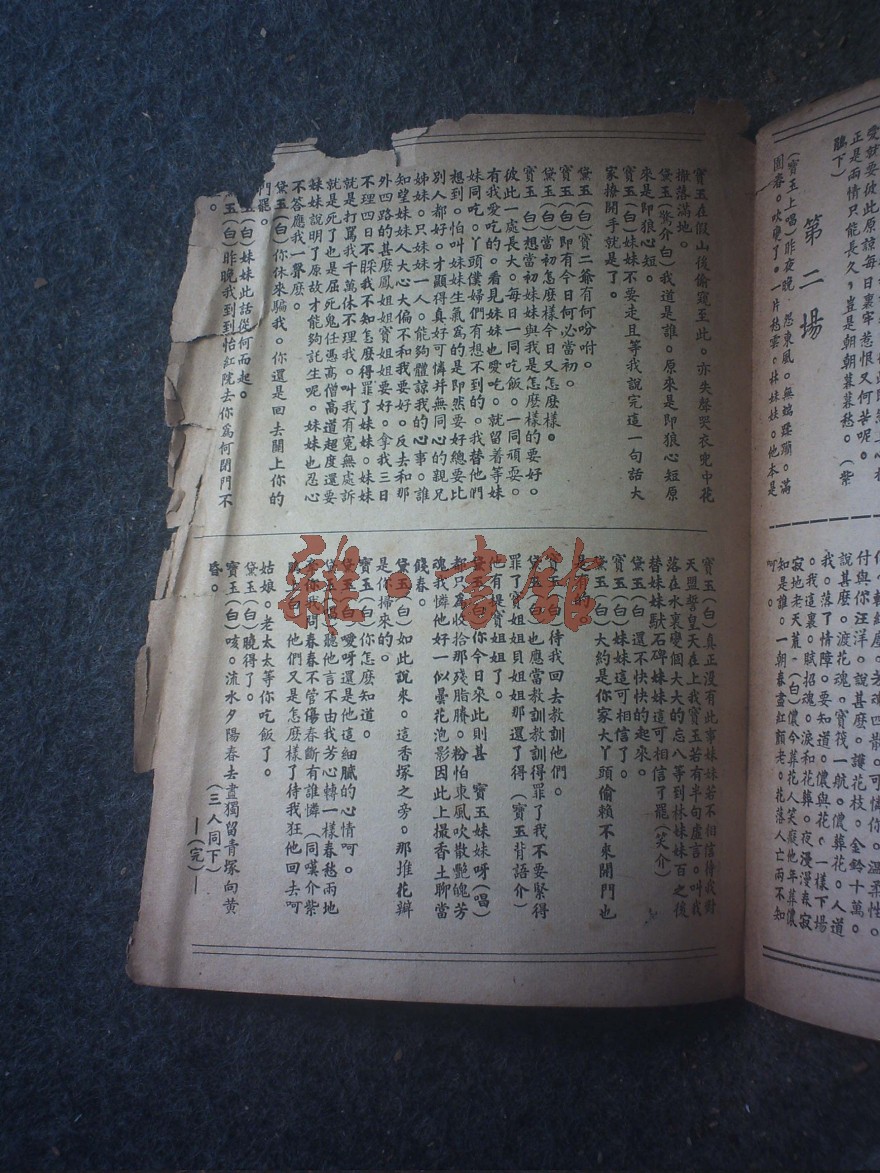 愛就要彼此原諒每日裏牢惹恨又何苦呢。
正是兩情只能長久，豈是朝朝暮暮愁。（紫
鵑下）
第二場
（寶玉上唱）昨夜晚。恐東風。無端蹂躪。滿
園春。吹變了。一片愁雲。林妹妹。他本是
付與你汪洋。說甚麼。護花枝。金鈴十萬。
說甚麼。渡花魂。寶筏一航。儂葬花。人道
我。落了情障。要知道。儂與花。一樣下場
。我這裏。賦招魂。淚和花葬。夜漫漫春寂
寂地老天荒。（白）儂今葬花人笑癡他年葬儂
知是誰。一朝春盡紅顏老。花落人亡兩不知
呵
寶玉在假山後偷窺至此。亦失聲哭衣兜中花
撒落滿地。
黛玉（驚介白）我道是誰。原來是即狼心短原
來是即狼心短。
寶玉（白）妹妹不要走且等我說完這一句話大
家撩開手就是了。
黛玉（白）寶二爺有何吩咐。
寶玉（白）即有今日何必當初。
黛玉（白）當初怎麼樣今日又怎麼樣。
寶玉（白）想當初妹妹與我是怎麼樣的要好。
彼此一處長大。每日一同吃飯。一同頑耍。
有我愛吃的。看見妹妹也愛吃。就留着等妹
妹同吃。丫頭僕婦們有想不到的。我替他們
想到。怕叫妹妹生氣爲的是即然要好總要比
別人都好。才顯得真好可憐并無同心的親兄
姊妹。只妹妹一人。能夠體諒我的心事。誰
知望妹妹人大心大偏不和我要好。反去和那
外四路的甚麼鳳姐姐寶姐姐要好。拿我三日
不理四日不睬我不知怎麼得罪了妹妹。妹妹
就是打罵我千萬休不理我。叫我有寃無處訴
就是死了也是屈死鬼任憑高僧高道超度還要
妹妹說明了原故才能夠託生呢。妹妹也忍心
不答應我一聲麼。
黛玉（白）你休來騙我。你還是回去關上你的
門罷。
玉（白）妹妹此話從何而起。
玉（白）昨晚我到怡紅院去你爲何閉門不
。
寶玉（白）真正沒有此事妹妹若不相信待我對
天盟誓皇天在上我寶玉若有半句虛言。叫我
落在水裏變個大大的忘八等到林妹妹百之後
替妹妹馱石碑妹妹這可相信了罷（笑介）
黛玉（白）還不快快的起來。
寶玉（白）妹妹這可相信了。
黛玉（白）大約是你家大丫頭偷賴不來開門也
是有的。
寶玉（白）待我回去教訓他們。
黛玉（白）也應當教訓教訓得罪了我不要緊得
罪了寶姐姐貝姐姐那還了得（寶玉背語介）
他有提寶姐姐了。
黛玉（白）你今日來此則甚 寶玉妹妹呀（唱）
都只爲收拾那殘脂賸。粉怕東風吹散艷魄芳
魂我憐他好一似曇花泡影因此上撮香土聊當
餞春。
黛玉（白）如此說來。這香塚之旁。那堆花瓣
是你掃來的。
寶玉（白）你怎麼知道。
黛玉（白）愛呀還是他這細膩的心情呵。
黛玉（唱）聽他言不由我芳心轉一樣春愁兩地
牽你我問春春不管傷春斷有誰憐（同嘆介紫
鵑上白）他們又是怎麼樣了待我狂他回去呵
姑娘。老太太等你吃飯了。
黛玉（白）曉得了。
寶玉（白）咳。流水夕陽春去盡獨留青塚向黃
昏。
（三人同下）
—（完）—
雜·書館